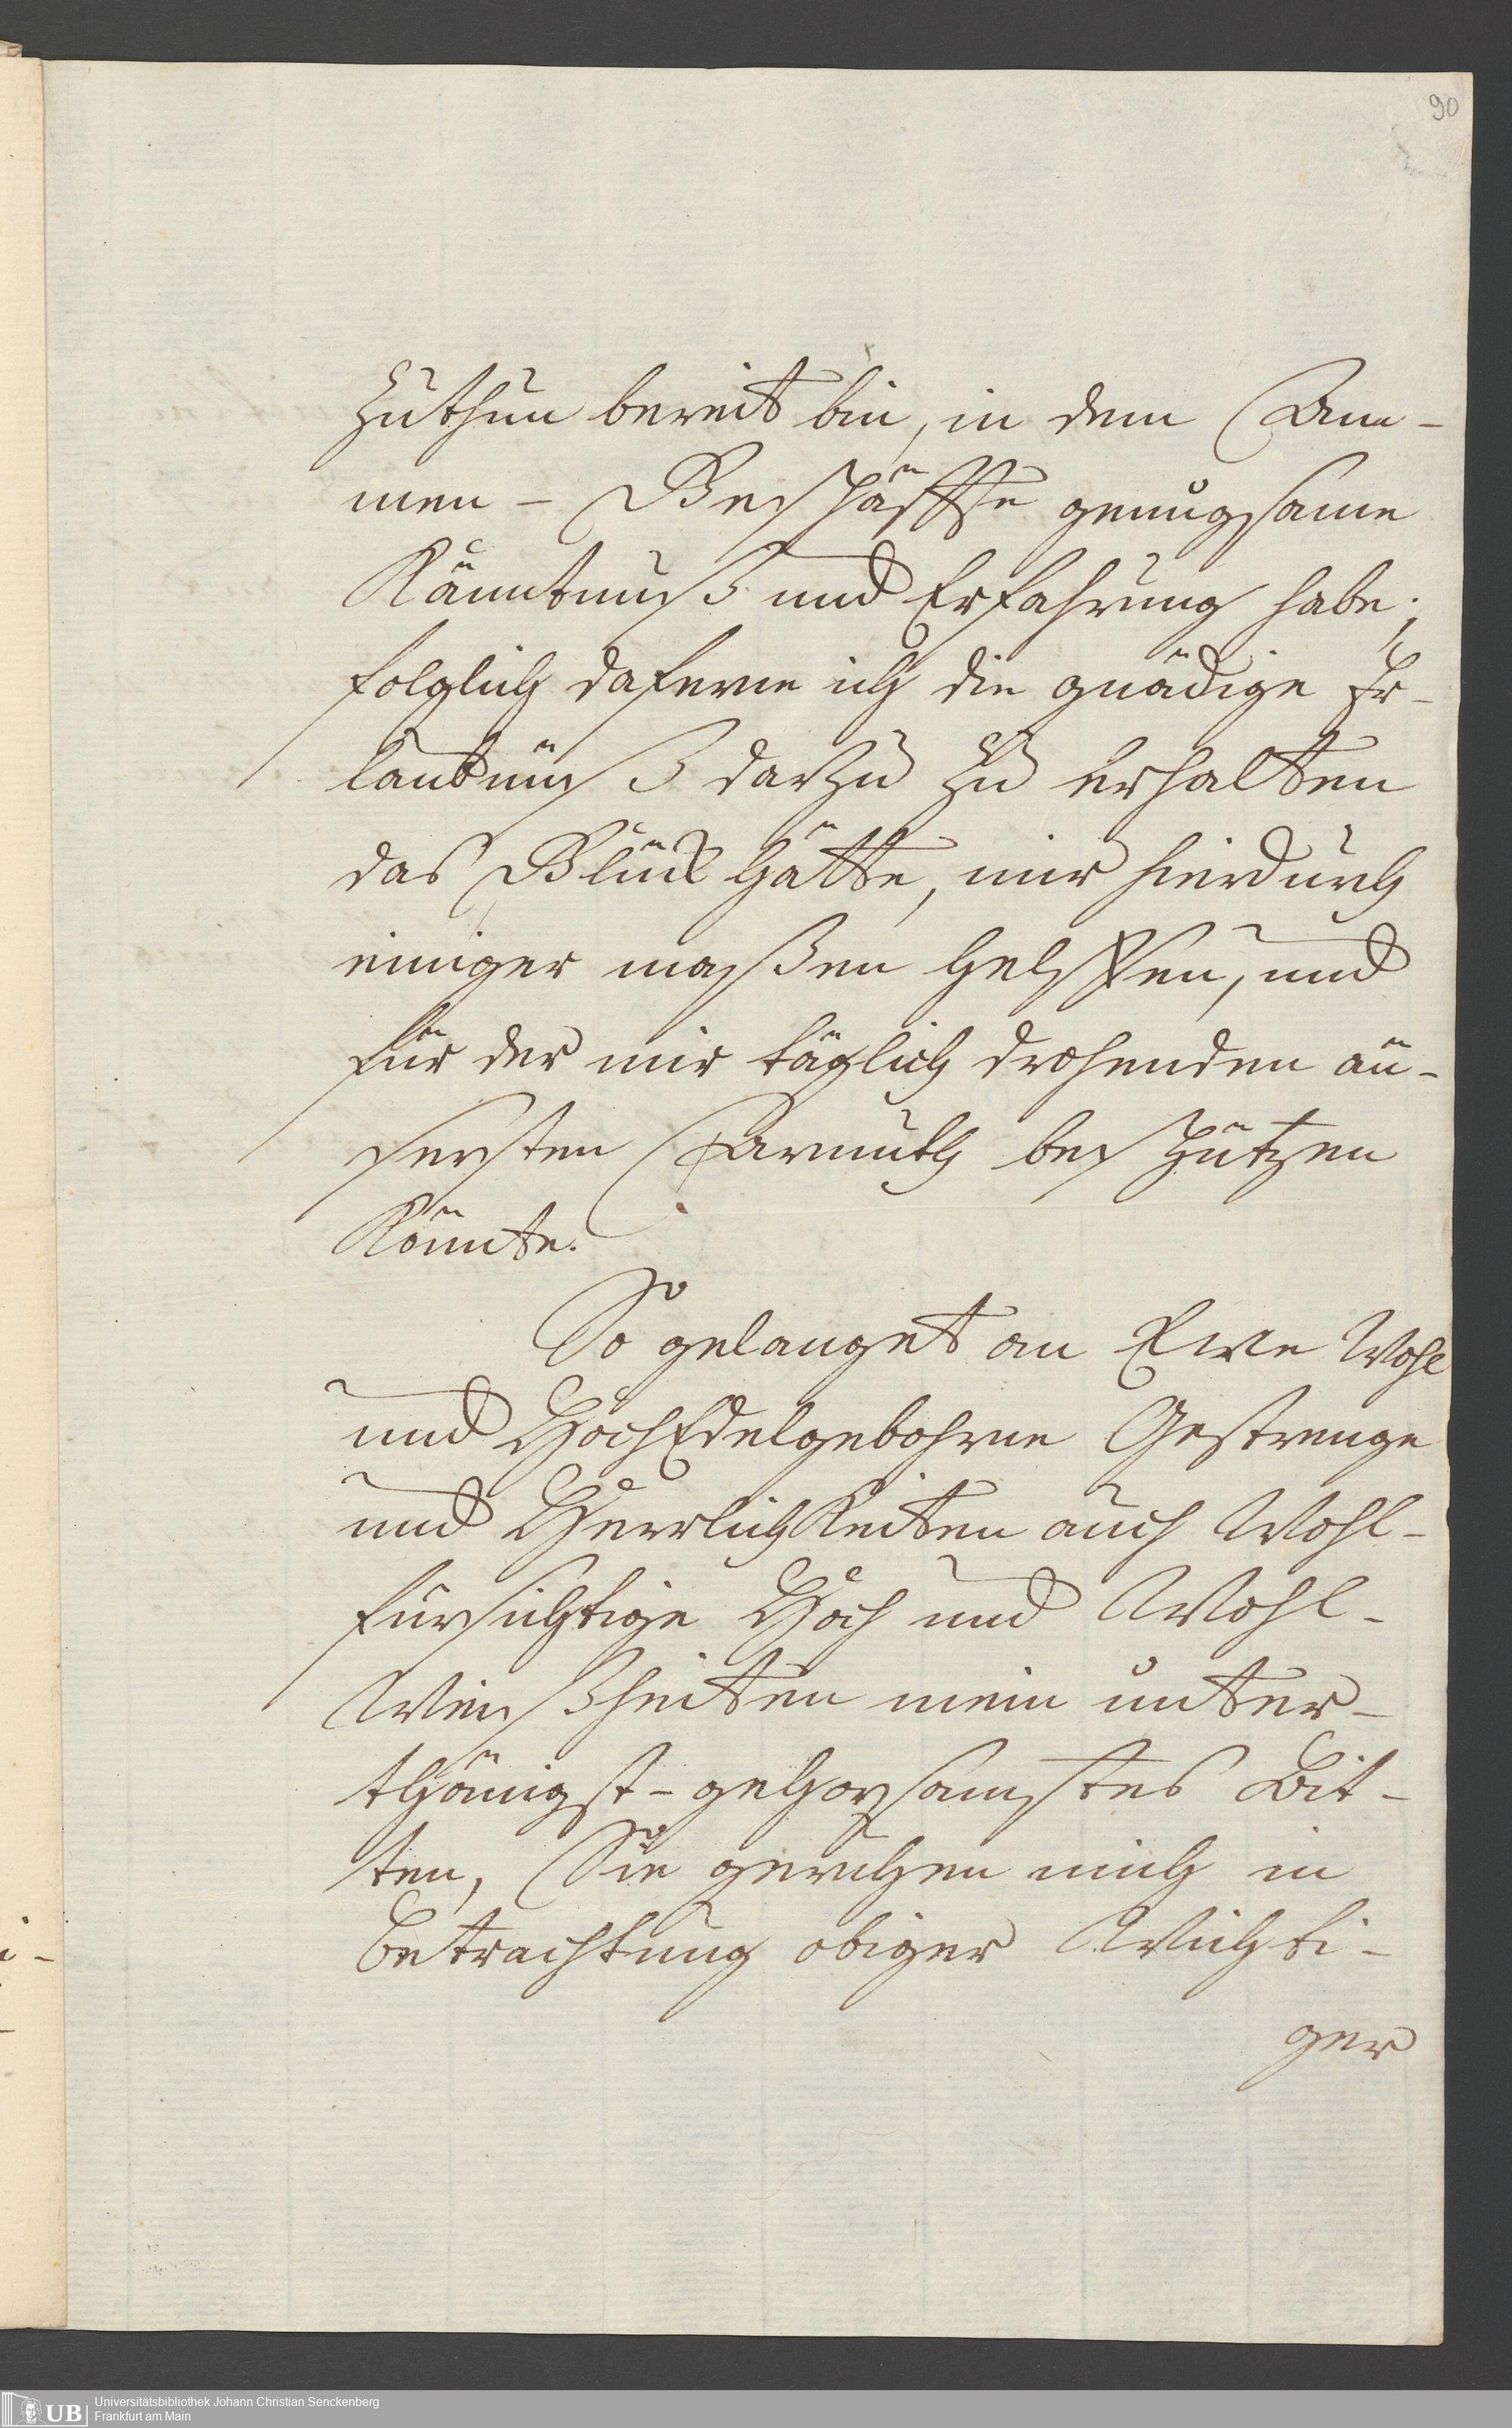 90
zuthun bereit bin, in dem Am-
men-Geschäffte genugsame
Känntnuß und Erfahrung habe;
folglich daferne ich die gnädige Er-
laubnüß darzu zu erhalten
das Glück hätte, mir hierdurch
einiger maßen helffen, und
für der mir täglich drohenden äu-
sersten Armuth beschützen
könnte.
So gelanget an Ewe Wohl
und HochEdelgebohrne Gestrenge
und Herrlichkeiten auch Wohl-
fürsichtige Hoch und Wohl-
Weißheiten mein unter-
thänigst-gehorsamstes Bit-
ten, Sie geruhen mich in
Betrachtung obiger Wichti-
ger
UB
Universitätsbibliothek Johann Christian Senckenberg
Frankfurt am Main